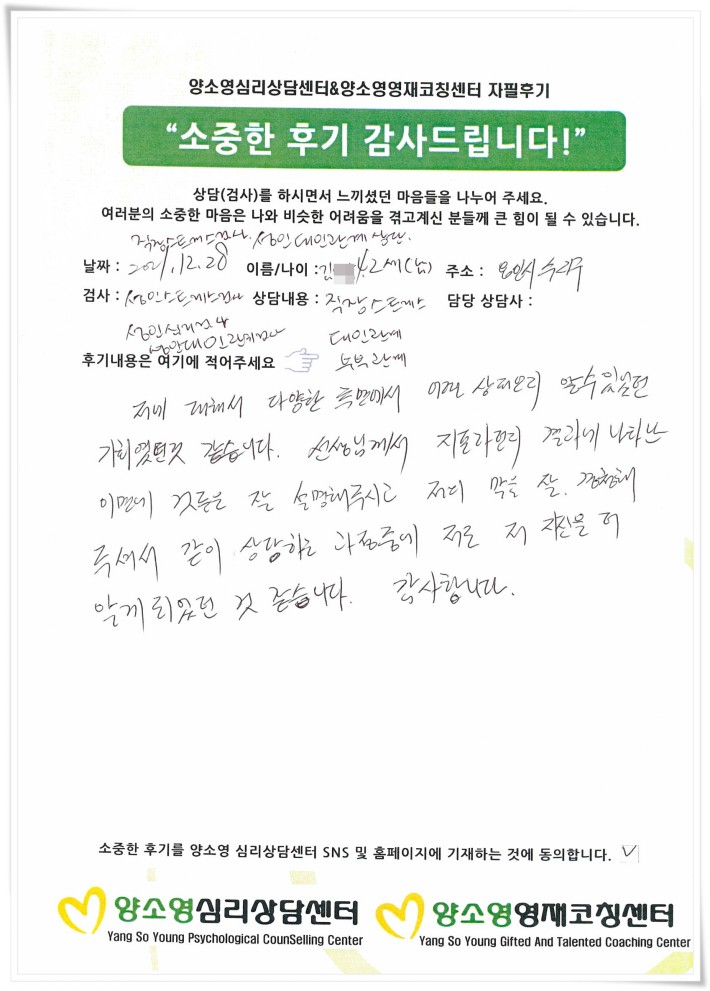 양소영심리상담센터&양소영영재코칭센터 자필후기
“소중한 후기 감사드립니다!”
상담(검사)를 하시면서 느끼셨던 마음들을 나누어 주세요.
여러분의 소중한 마음은 나와 비슷한 어려움을 겪고계신 분들께 큰 힘이 될 수 있습니다.
직장스트레스검사. 성인 대인관계 상담.
날짜 : 2021.12.28 이름/나이 : 김 42세(남) 주소 : 용인시 수지구
검사 : 성인스트레스검사 상담내용 : 직장스트레스 담당 상담사 :
성인심리검사 대인관계
성인대인관계검사 부부관계
후기내용은 여기에 적어주세요
저에 대해서 다양한 측면에서 어떤 상태인지 알수있었던
기회였던것 같습니다. 선생님께서 지표라던지 결과에 나타난
이면에 것들을 잘 설명해주시고 저의 말을 잘 경청해
주셔서 같이 상담하는 과정중에 저도 저 자신을 더
알게 되었던 것 같습니다. 감사합니다.
소중한 후기를 양소영 심리상담센터 SNS 및 홈페이지에 기재하는 것에 동의합니다. ✓
양소영심리상담센터 양소영영재코칭센터
Yang So Young Psychological CounSelling Center Yang So Young Gifted And Talented Coaching Center